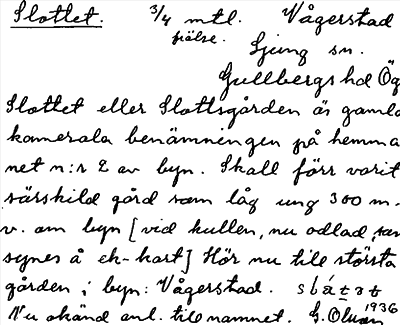 Slottet. 3/4 mtl. Vågerstad
frälse. Ljung sn.
Gullbergs hd Ög
Slottet eller Slottsgården är gamla
kamerala benämningen på hemma
net n:r 2 av byn. Skall förr varit
särskild gård som låg ung 300 m.
v. om byn [vid kullen, nu odlad, som
synes å ek-kart] Hör nu till största
gården i byn: Vågerstad.
Nu okänd anl. till namnet. G. Olson 1936